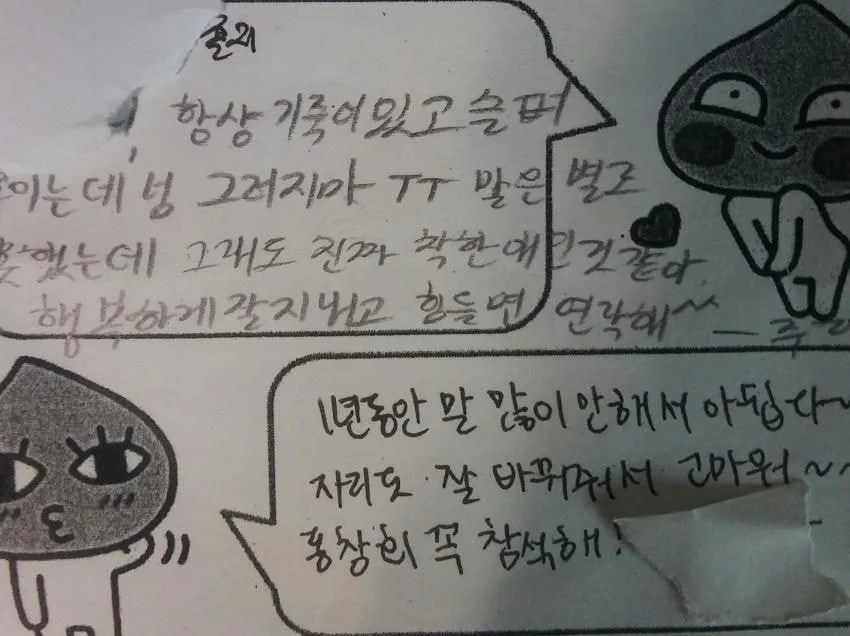 항상 기죽어있고 슬퍼
이는데 넝 그러지마 ㅜㅜ 말은 별로
했는데 그래도 진짜 착한애인것같아
행복하게 잘지내고 힘들면 연락해~
1년동안 말 많이 안해서 아쉽다~
자리도 잘 바꿔줘서 고마워~~
홍창회 꼭 참석해!